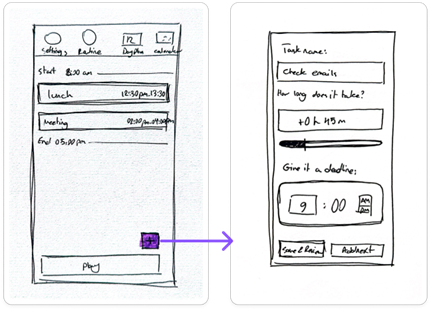 Settings Routine Dayplan calendar
12
Start 8:00 am
lunch 12:30pm-13:30
Meeting 02:00pm-04:00pm
End 05:00 pm
+
play
Task name:
Check emails
How long does it take?
+0 h 45 m
Give it a deadline:
9 : 00 AM
Save & Review Add next